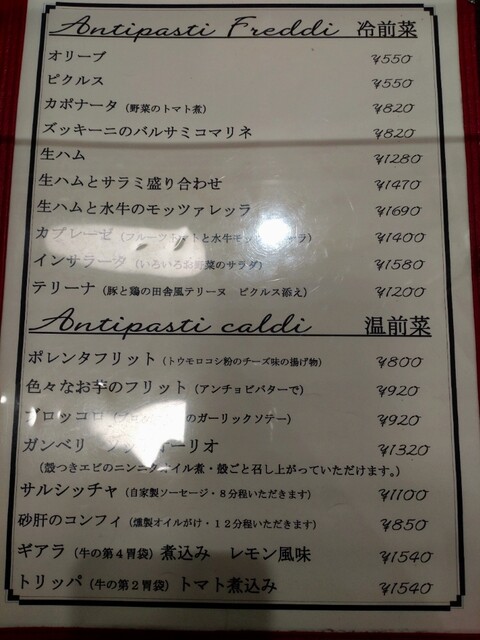 Antipasti Freddi 冷前菜
オリーブ ¥550
ピクルス ¥550
カポナータ（野菜のトマト煮） ¥820
ズッキーニのバルサミコマリネ ¥820
生ハム ¥1280
生ハムとサラミ盛り合わせ ¥1470
生ハムと水牛のモッツァレッラ ¥1690
カプレーゼ（フルーツトマトと水牛モッツァレッラ） ¥1400
インサラータ（いろいろお野菜のサラダ） ¥1580
テリーナ（豚と鶏の田舎風テリーヌ ピクルス添え） ¥1200
Antipasti caldi 温前菜
ポレンタフリット（トウモロコシ粉のチーズ味の揚げ物） ¥800
色々なお芋のフリット（アンチョビバターで） ¥920
ブロッコロ（のガーリックソテー） ¥920
ガンベリ ーリオ ¥1320
（殻つきエビのニンニクオイル煮・殻ごと召し上がっていただけます。）
サルシッチャ（自家製ソーセージ・８分程いただきます） ¥1100
砂肝のコンフィ（燻製オイルがけ・１２分程いただきます） ¥850
ギアラ（牛の第４胃袋）煮込み レモン風味 ¥1540
トリッパ（牛の第２胃袋）トマト煮込み ¥1540